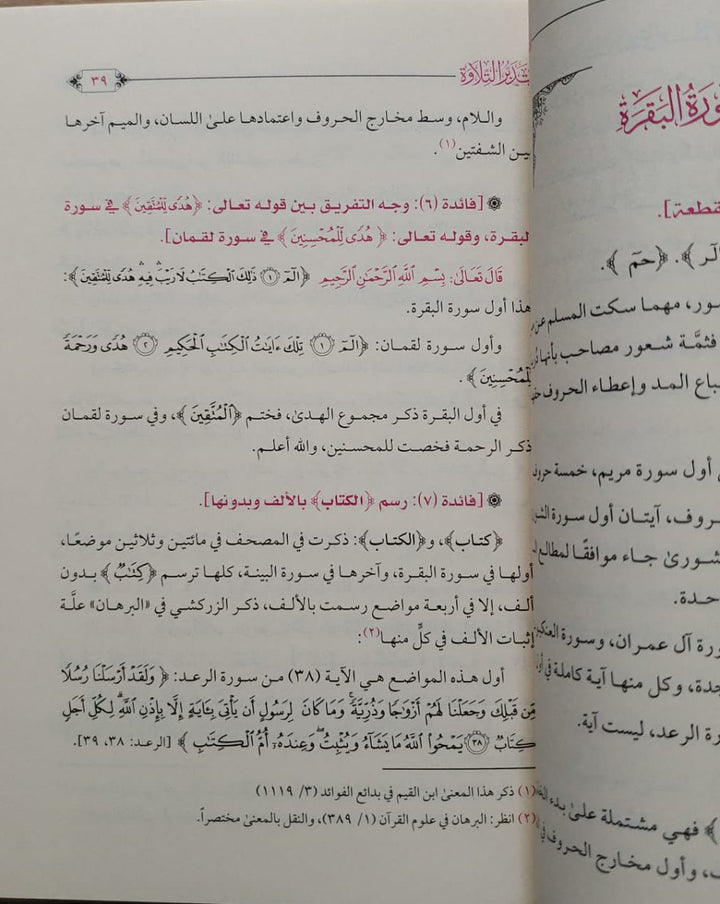 سورة البقرة
قطعة].
الٓر ﴾. ﴿حمٓ ﴾.
سور، مهما سكت المسلم عن
فثمَّة شعور مصاحب بأنها
باع المد وإعطاء الحروف
أول سورة مريم، خمسة حروف
روف، آيتان أول سورة الشورى
شورىٰ جاء موافقًا لمطالع
حدة.
رة آل عمران، وسورة العنكبوت
حدة، وكل منها آية كاملة في
رة الرعد، ليست آية.
﴾ فهي مشتملة علىٰ بدء
، وأول مخارج الحروف
تدبر التلاوة
٣٩
واللام، وسط مخارج الحروف واعتمادها علىٰ اللسان، والميم آخرها
بين الشفتين(١).
[فائدة (٦): وجه التفريق بين قوله تعالى: ﴿هُدٗى لِّلۡمُتَّقِينَ﴾ في سورة
البقرة، وقوله تعالى: ﴿هُدٗى لِّلۡمُحۡسِنِينَ﴾ في سورة لقمان].
قَالَ تَعَالَىٰ: بِسۡمِ ٱللَّهِ ٱلرَّحۡمَٰنِ ٱلرَّحِيمِ ﴿الٓمٓ ١ ذَٰلِكَ ٱلۡكِتَٰبُ لَا رَيۡبَۛ فِيهِۛ هُدٗى لِّلۡمُتَّقِينَ﴾:
هذا أول سورة البقرة.
وأول سورة لقمان: ﴿الٓمٓ ١ تِلۡكَ ءَايَٰتُ ٱلۡكِتَٰبِ ٱلۡحَكِيمِ ٢ هُدٗى وَرَحۡمَةٗ
لِّلۡمُحۡسِنِينَ﴾.
في أول البقرة ذكر مجموع الهدىٰ، فختم ﴿ٱلۡمُتَّقِينَ﴾، وفي سورة لقمان
ذكر الرحمة فخصت للمحسنين، والله أعلم.
[فائدة (٧): رسم ﴿الكتاب﴾ بالألف وبدونها].
﴿كتاب﴾، و﴿الكتاب﴾: ذكرت في المصحف في مائتين وثلاثين موضعًا،
أولها في سورة البقرة، وآخرها في سورة البينة، كلها ترسم ﴿كِتَٰبٞ﴾ بدون
ألف، إلا في أربعة مواضع رسمت بالألف، ذكر الزركشي في «البرهان» علَّة
إثبات الألف في كلٍّ منها(٢):
أول هذه المواضع هي الآية (٣٨) من سورة الرعد: ﴿ وَلَقَدۡ أَرۡسَلۡنَا رُسُلٗا
مِّن قَبۡلِكَ وَجَعَلۡنَا لَهُمۡ أَزۡوَٰجٗا وَذُرِّيَّةٗۚ وَمَا كَانَ لِرَسُولٍ أَن يَأۡتِيَ بِـَٔايَةٍ إِلَّا بِإِذۡنِ ٱللَّهِۗ لِكُلِّ أَجَلٖ
كِتَابٞ ٣٨ يَمۡحُواْ ٱللَّهُ مَا يَشَآءُ وَيُثۡبِتُۖ وَعِندَهُۥٓ أُمُّ ٱلۡكِتَٰبِ ﴾ [الرعد: ٣٨، ٣٩].
(١) ذكر هذا المعنىٰ ابن القيم في بدائع الفوائد (٣/ ١١١٩)
(٢) انظر: البرهان في علوم القرآن (١/ ٣٨٩)، والنقل بالمعنىٰ مختصراً.